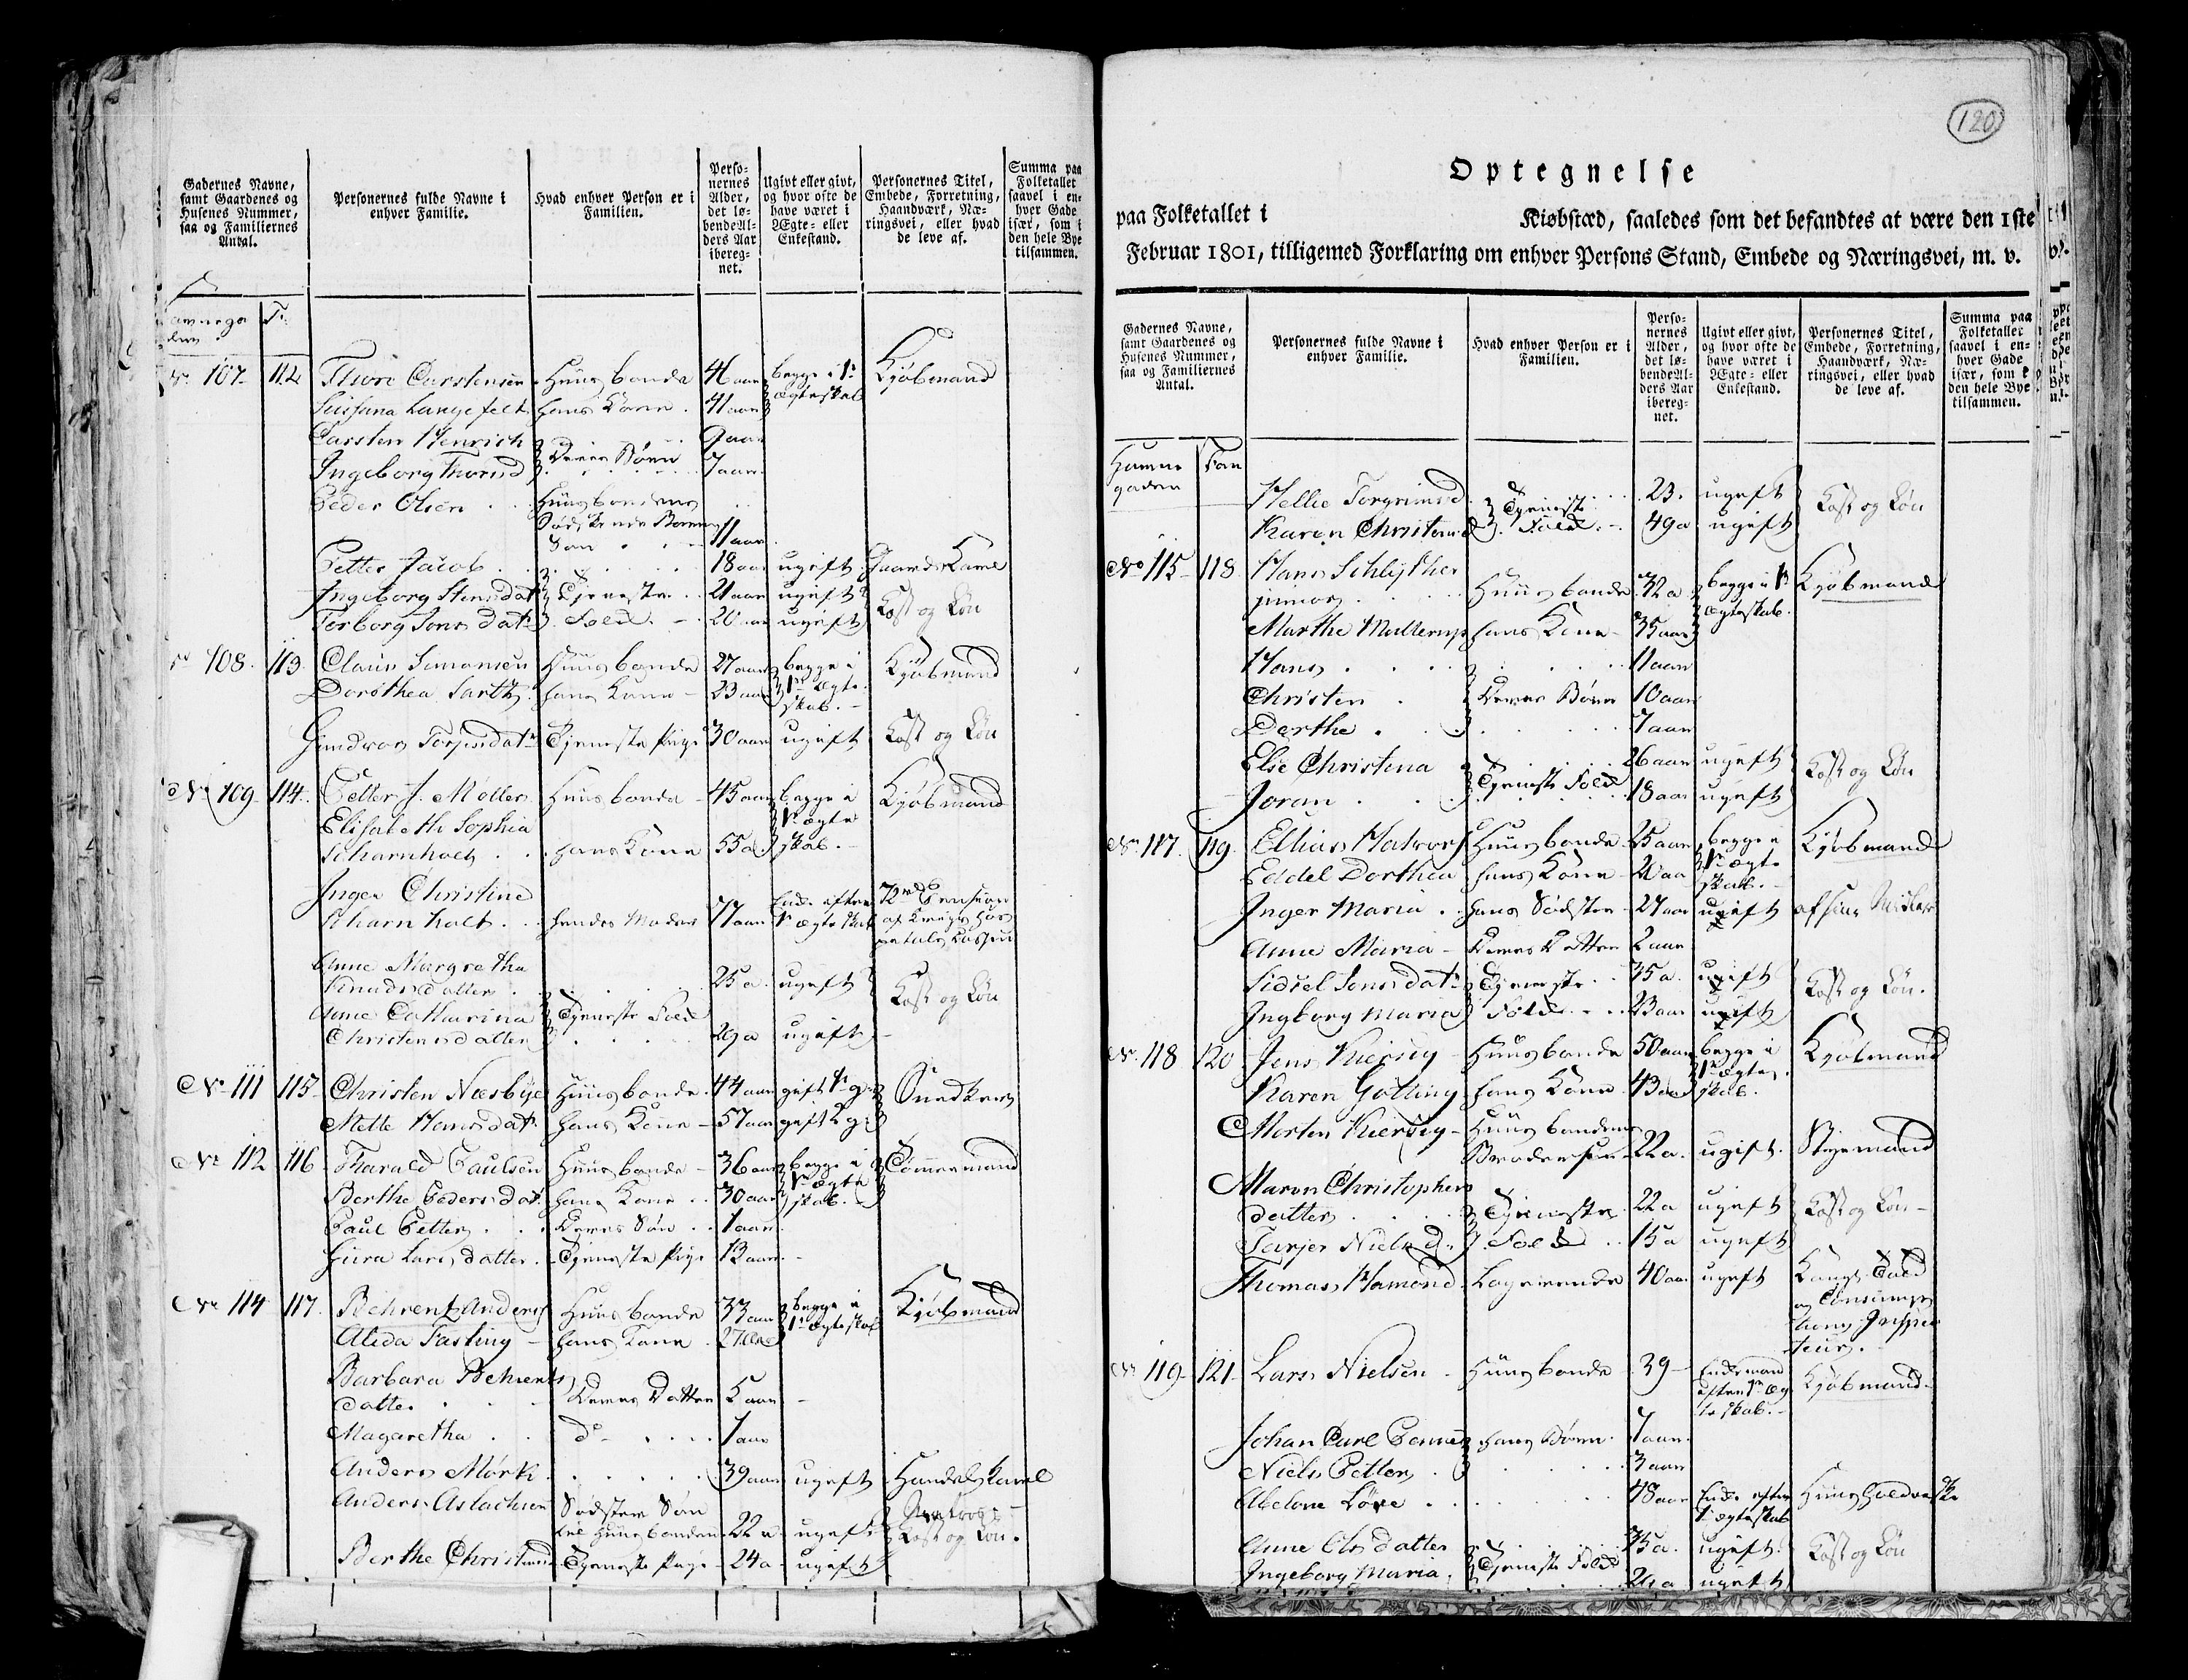 Gadernes Navne, samt Gaardenes og Husenes Nummer, saa og Familiernes Antal.
Personernes fulde Navne i enhver Familie.
Hvad enhver Person er i Familien.
Personernes Alder, det løbende Alders Aar iberegnet.
Ugivt eller givt, og hvor ofte de have været i Ægte- eller Enkestand.
Personernes Titel, Embede, Forretning, Haandværk, Næringsvei, eller hvad de leve af.
Summa paa Folketallet saavel i enhver Gade især, som i den hele Bye tilsammen.
107 112 Thore Carstensen Huusbonde 46 aar begge i 1te Kjøbmand
Susana Langefelt hans Kone 41 aar ægteskab
Carsten Henrich 9 aar
Deres Børn
Ingeborg Thorsd 7 aar
Peder Olsen Huusbondens
Sødskende Barns
Søn 11 aar
Petter Jacob 18 aar ugift Gaards Karl
Ingeborg Stensdat Tjeneste 21 aar ugift Kost og Løn
Torborg Jonsdatr Folk 20 aar ugift
108 113 Claus Simonsen Huusbonde 27 aar begge i Kjøbmand
Dorothea Harth hans Kone 23 aar 1te ægteskab
Gundvor Torjusdatr Tjeneste Pige 30 aar ugift Kost og Løn
No 109 114 Petter J. Møller Huusbonde 45 aar begge i Kjøbmand
Elisabeth Sophia 1te ægte
Scharnholt hans Kone 55 a skab
Inger Christine Enke efter 72 rd Pension
Scharnholt hendes Moder 77 aar 1te ægteskab af Krigs Hos
pitals Cassen
Anne Margretha
Knudsdatter 25 a ugift Kost og Løn
Anne Catharina Tjeneste Folk
Christensdatter 29 a ugift
No 111 115 Christen Næsbye Huusbonde 44 aar gift 1te g Snedker
Mette Hansdat hans Kone 57 aar gift 2 g
No 112 116 Tharald Paulsen Huusbonde 36 aar begge i Tømmermand
Berthe Pedersdat hans Kone 30 aar 1te ægteskab
Paul Petter Deres Søn 1 aar
Gura Larsdatter Tjeneste Pige 13 aar
No 114 117 Behrent Anders Huusbonde 33 aar begge i Kjøbmand
Aleda Fasting hans Kone 27 aar 1te ægteskab
Barbara Behrents
datter Deres Datter 5 aar
Magaretha do 1 aar
Anders Mørk 39 aar ugift Handels Karl
Anders Aslachsen Søsters Søn
til Huusbonden 22 a ugift Kost og Løn
Berthe Christensd Tjeneste Pige 24 a ugift
120
Optegnelse
paa Folketallet i Kiøbstæd, saaledes som det befandtes at være den 1ste
Februar 1801, tilligemed Forklaring om enhver Persons Stand, Embede og Næringsvei, m. v.
Gadernes Navne, samt Gaardenes og Husenes Nummer, saa og Familiernes Antal.
Personernes fulde Navne i enhver Familie.
Hvad enhver Person er i Familien.
Personernes Alder, det løbende Alders Aar iberegnet.
Ugivt eller givt, og hvor ofte de have været i Ægte- eller Enkestand.
Personernes Titel, Embede, Forretning, Haandværk, Næringsvei, eller hvad de leve af.
Summa paa Folketallet saavel i enhver Gade især, som i den hele Bye tilsammen.
Havne Fam
gaden
Hellie Torgrimsd 23 ugift
Tjeneste Kost og Løn
Karen Christensd Folk 49 a ugift
No 115 118 Hans Schlyther
junior Huusbonde 32 a begge i 1te Kjøbmand
Marthe Mullerup hans Kone 35 aar ægteskab
Hans 11 aar
Christen Deres Børn 10 aar
Dorthe 7 aar
Else Christena 26 aar ugift
Tjeneste Folk Kost og Løn
Joran 18 aar ugift
No 117 119 Ellias Halvors Huusbonde 25 aar begge i Kjøbmand
Eddel Dorthea hans Kone 20 aar 1te ægteskab
Inger Maria hans Sødster 27 aar ugift af sine Midler
Anne Maria Deres Datter 2 aar
Sidsel Jonsdatr Tjeneste 35 a ugift Kost og Løn
Ingborg Maria Folk 23 aar ugift
No 118 120 Jens Kiersig Huusbonde 50 aar begge i Kjøbmand
Karen Gotling hans Kone 43 aar 1te ægteskab
Morten Kiersig Huusbondens
Broders Søn 22 a ugift Styrmand
Maren Christophers
datter Tjeneste 22 a ugift Kost og Løn
Tarjer Nielsd Folk 15 a ugift
Thomas Hamond Logerende 40 aar ugift Kongl. Told
og Consumptions Inspec
teur
No 119 121 Lars Nielsen Huusbonde 39 Enkemand
efter 1te æg Kjøbmand
teskab
Johan Carl hans Børn 7 aar
Niels Petter 3 aar
Abelone Løve 48 aar Enke efter Huusholderske
1te ægteskab
Anne Olsdatter 35 a ugift
Tjeneste Folk Kost og Løn
Ingeborg Maria ugift